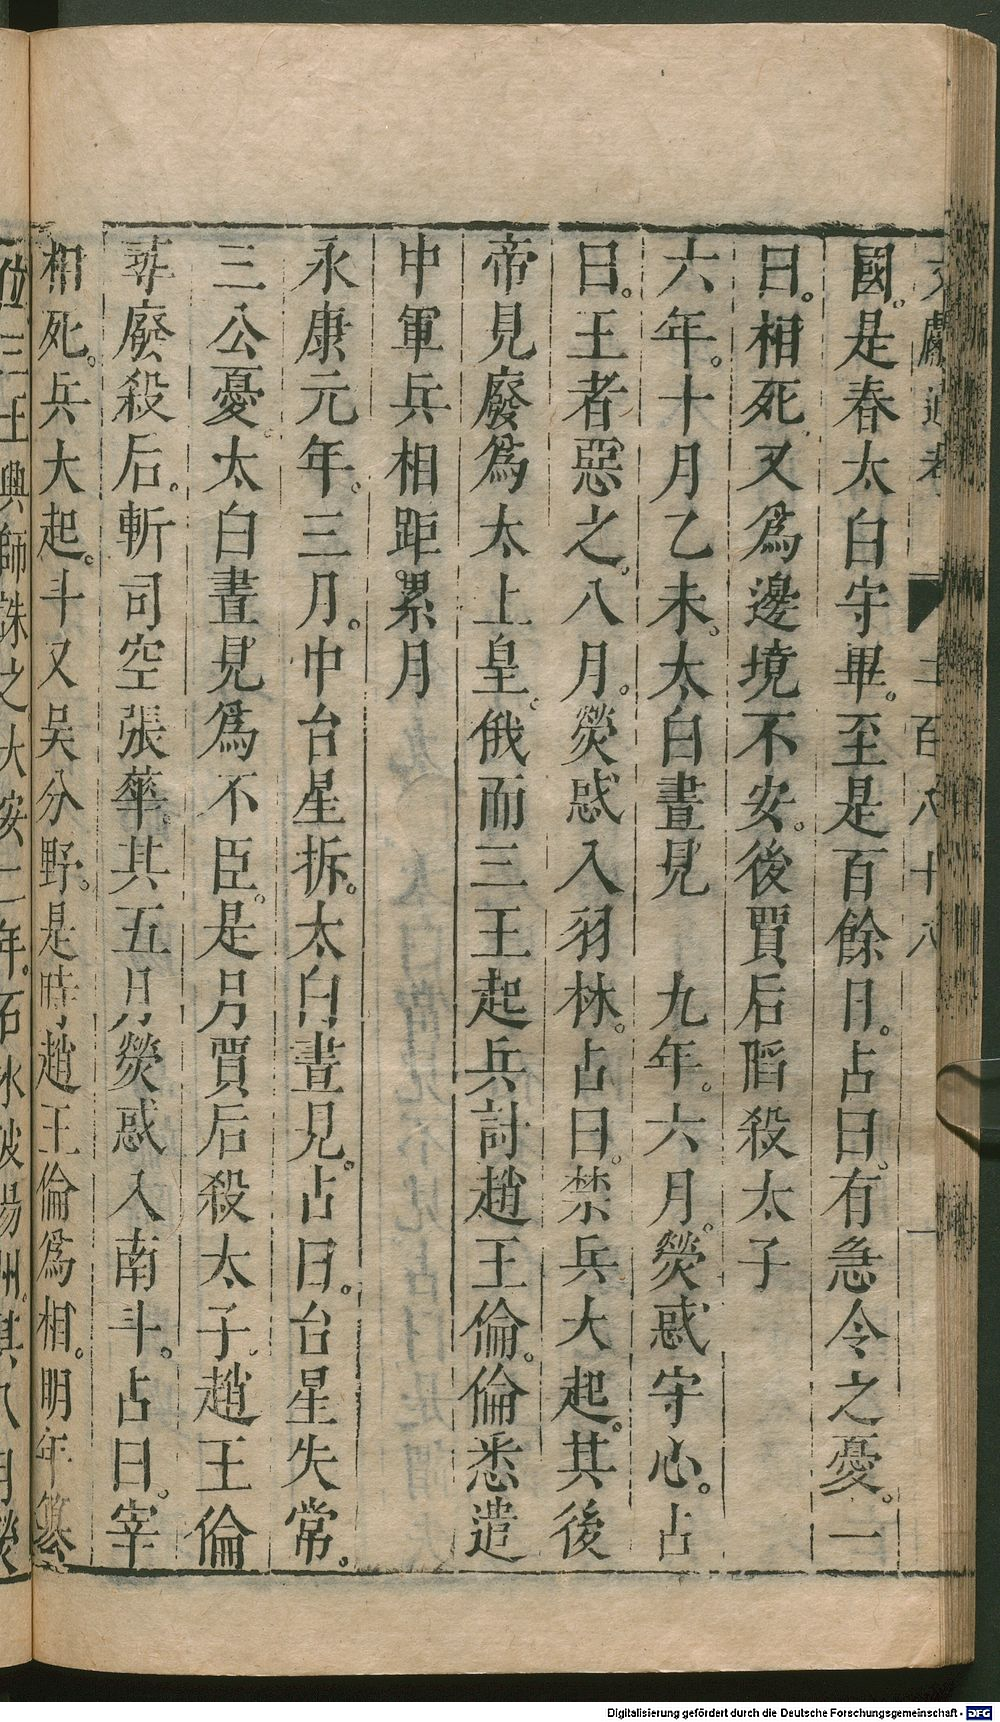 文獻通考 二百八十八 一
國。是春太白守畢。至是百餘日。占曰。有急令之憂。一
曰。相死。又爲邊境不安。後賈后陷殺太子
六年。十月乙未。太白晝見　九年。六月。熒惑守心。占
曰。王者惡之。八月。熒惑入羽林。占曰。禁兵大起。其後
帝見廢爲太上皇。俄而三王起兵討趙王倫。倫悉遣
中軍兵相距累月
永康元年。三月。中台星拆。太白晝見。占曰。台星失常。
三公憂。太白晝見爲不臣。是月賈后殺太子。趙王倫
尋廢殺后。斬司空張華。其五月熒惑入南斗。占曰。宰
相死。兵大起。斗又吳分野。是時趙王倫爲相。明年篡
位三王興師誅之太安二年。石冰破揚州。其八月熒
Digitalisierung gefördert durch die Deutsche Forschungsgemeinschaft - DFG